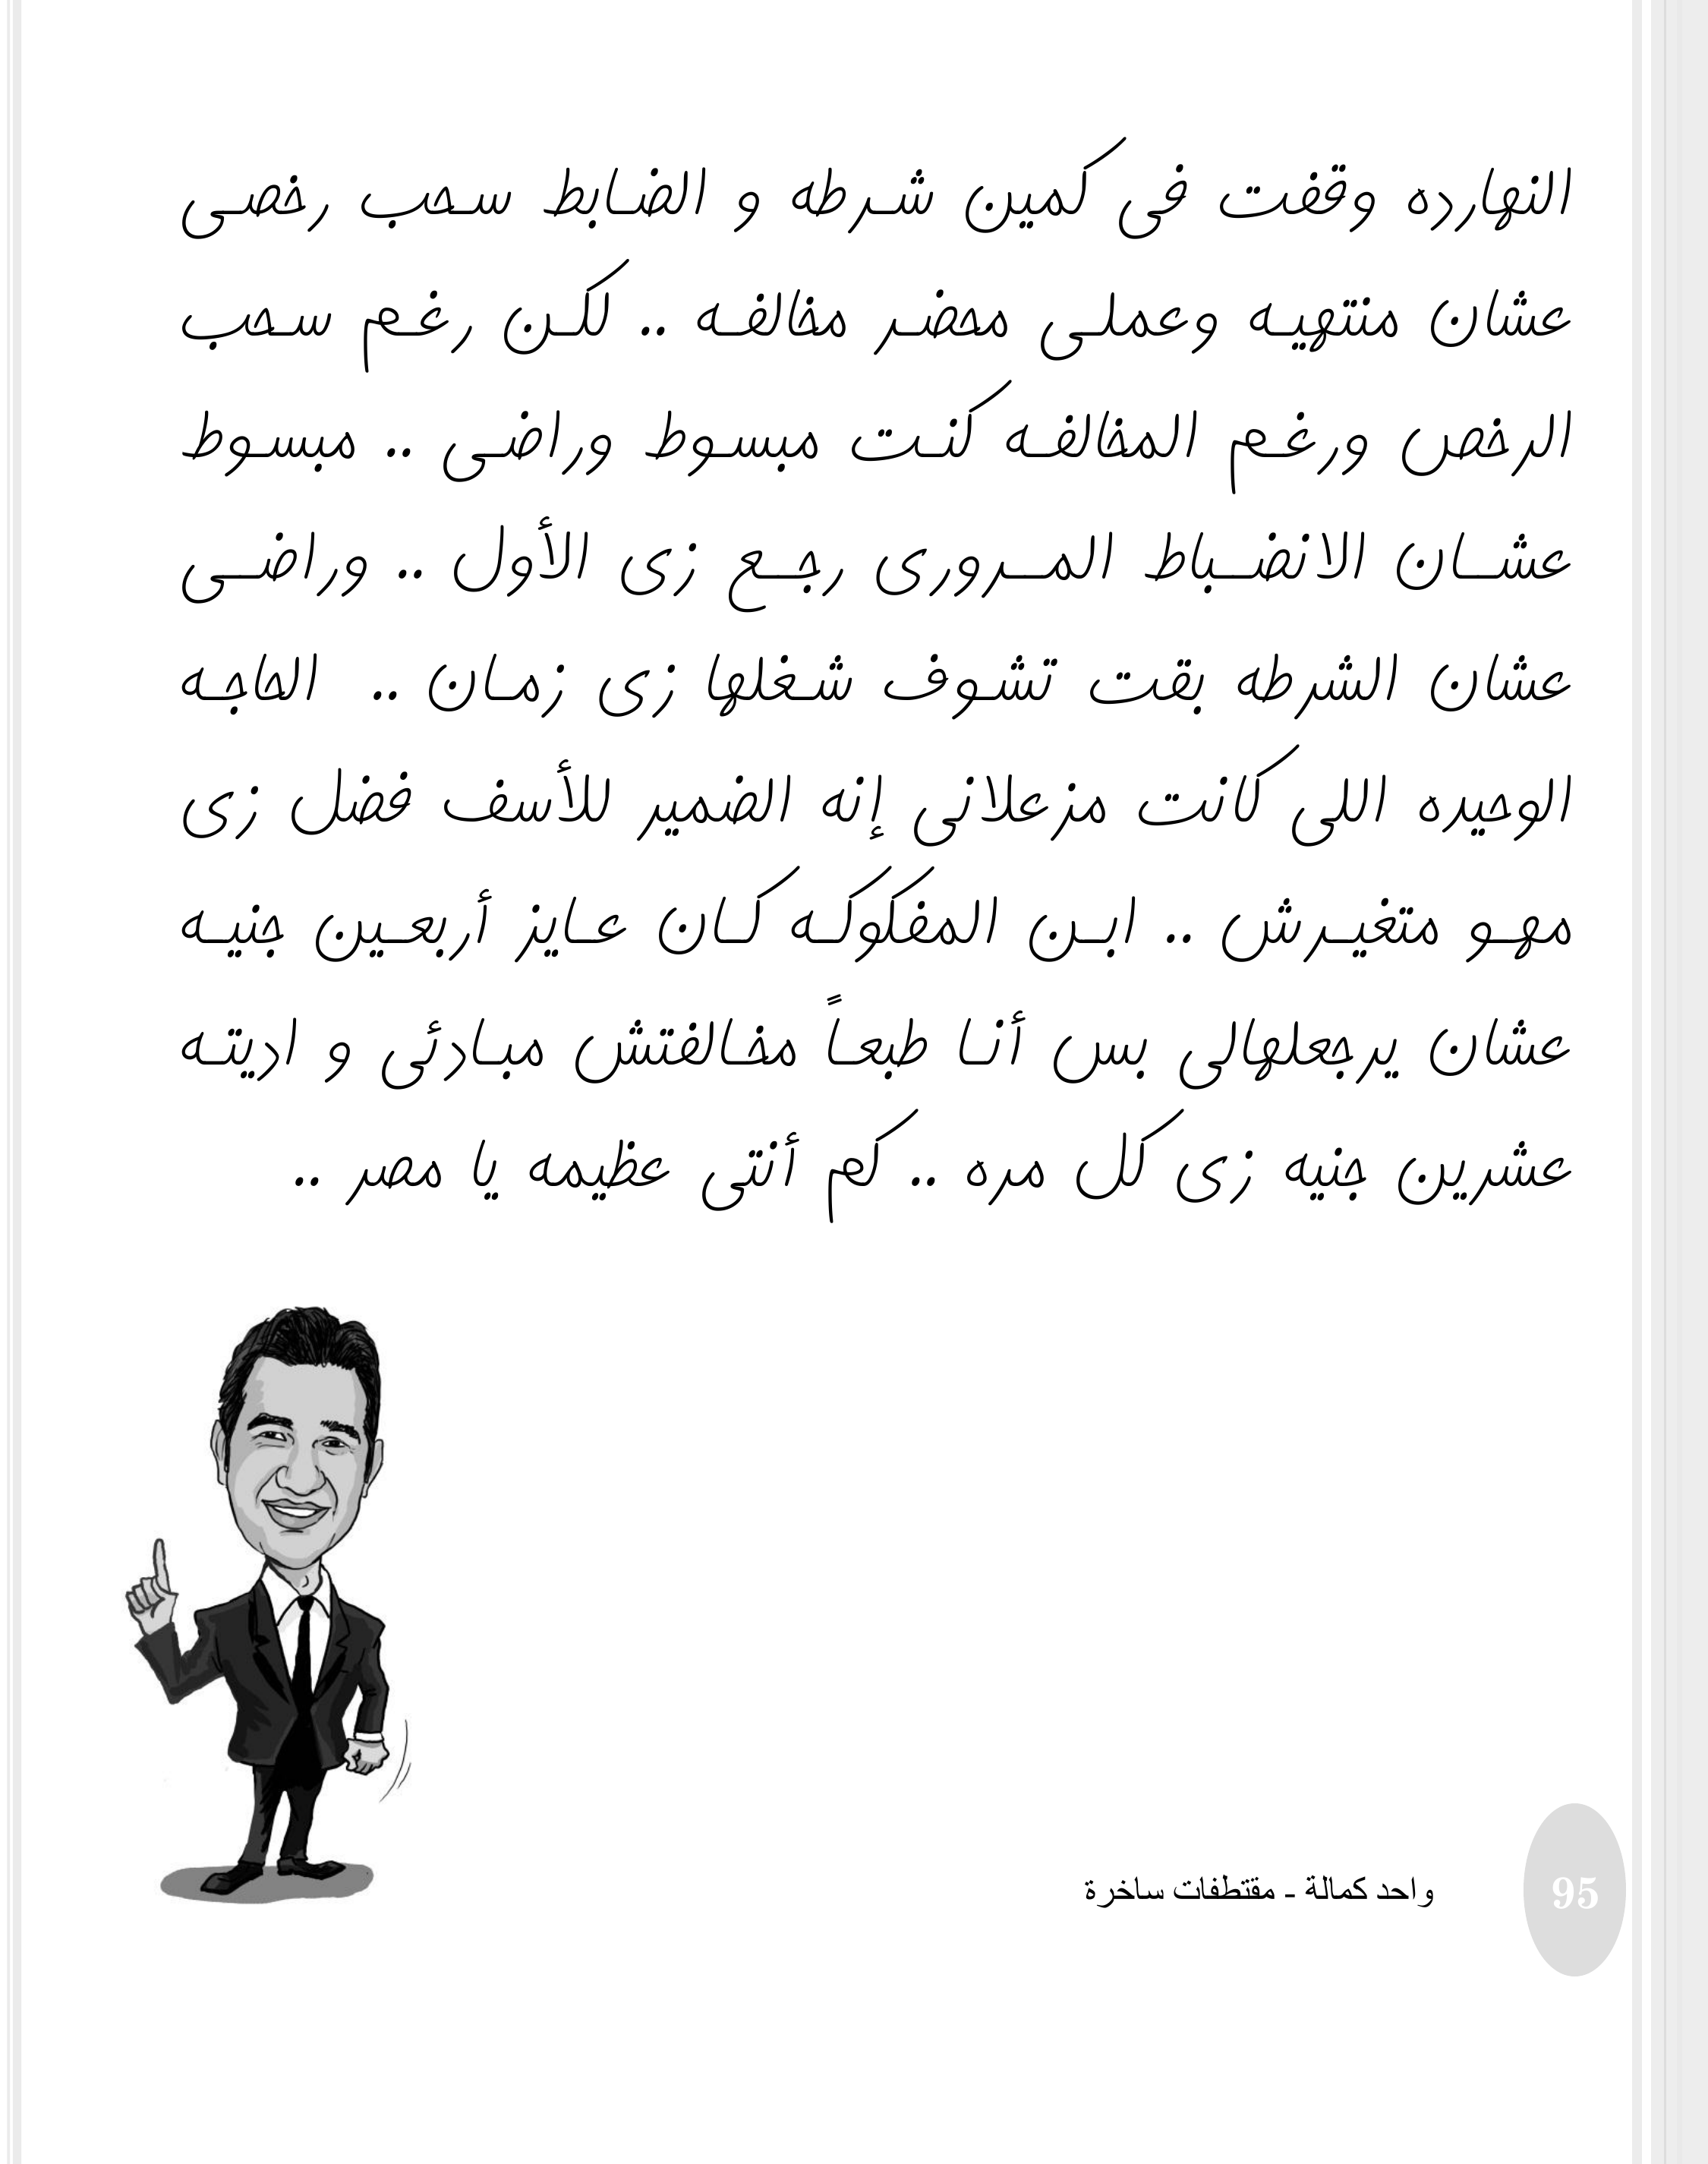 النهارده وقفت فى كمين شرطه و الضابط سحب رخصى
عشان منتهيه وعملى محضر مخالفه .. لكن رغم سحب
الرخص ورغم المخالفه كنت مبسوط وراضى .. مبسوط
عشان الانضباط المرورى رجع زى الأول .. وراضى
عشان الشرطه بقت تشوف شغلها زى زمان .. الحاجه
الوحيده اللى كانت مزعلانى إنه الضمير للأسف فضل زى
مهو متغيرش .. ابن المفكوكه كان عايز أربعين جنيه
عشان يرجعلهالى بس أنا طبعاً مخالفتش مبادئى و اديته
عشرين جنيه زى كل مره .. كم أنتى عظيمه يا مصر ..
واحد كمالة - مقتطفات ساخرة
95